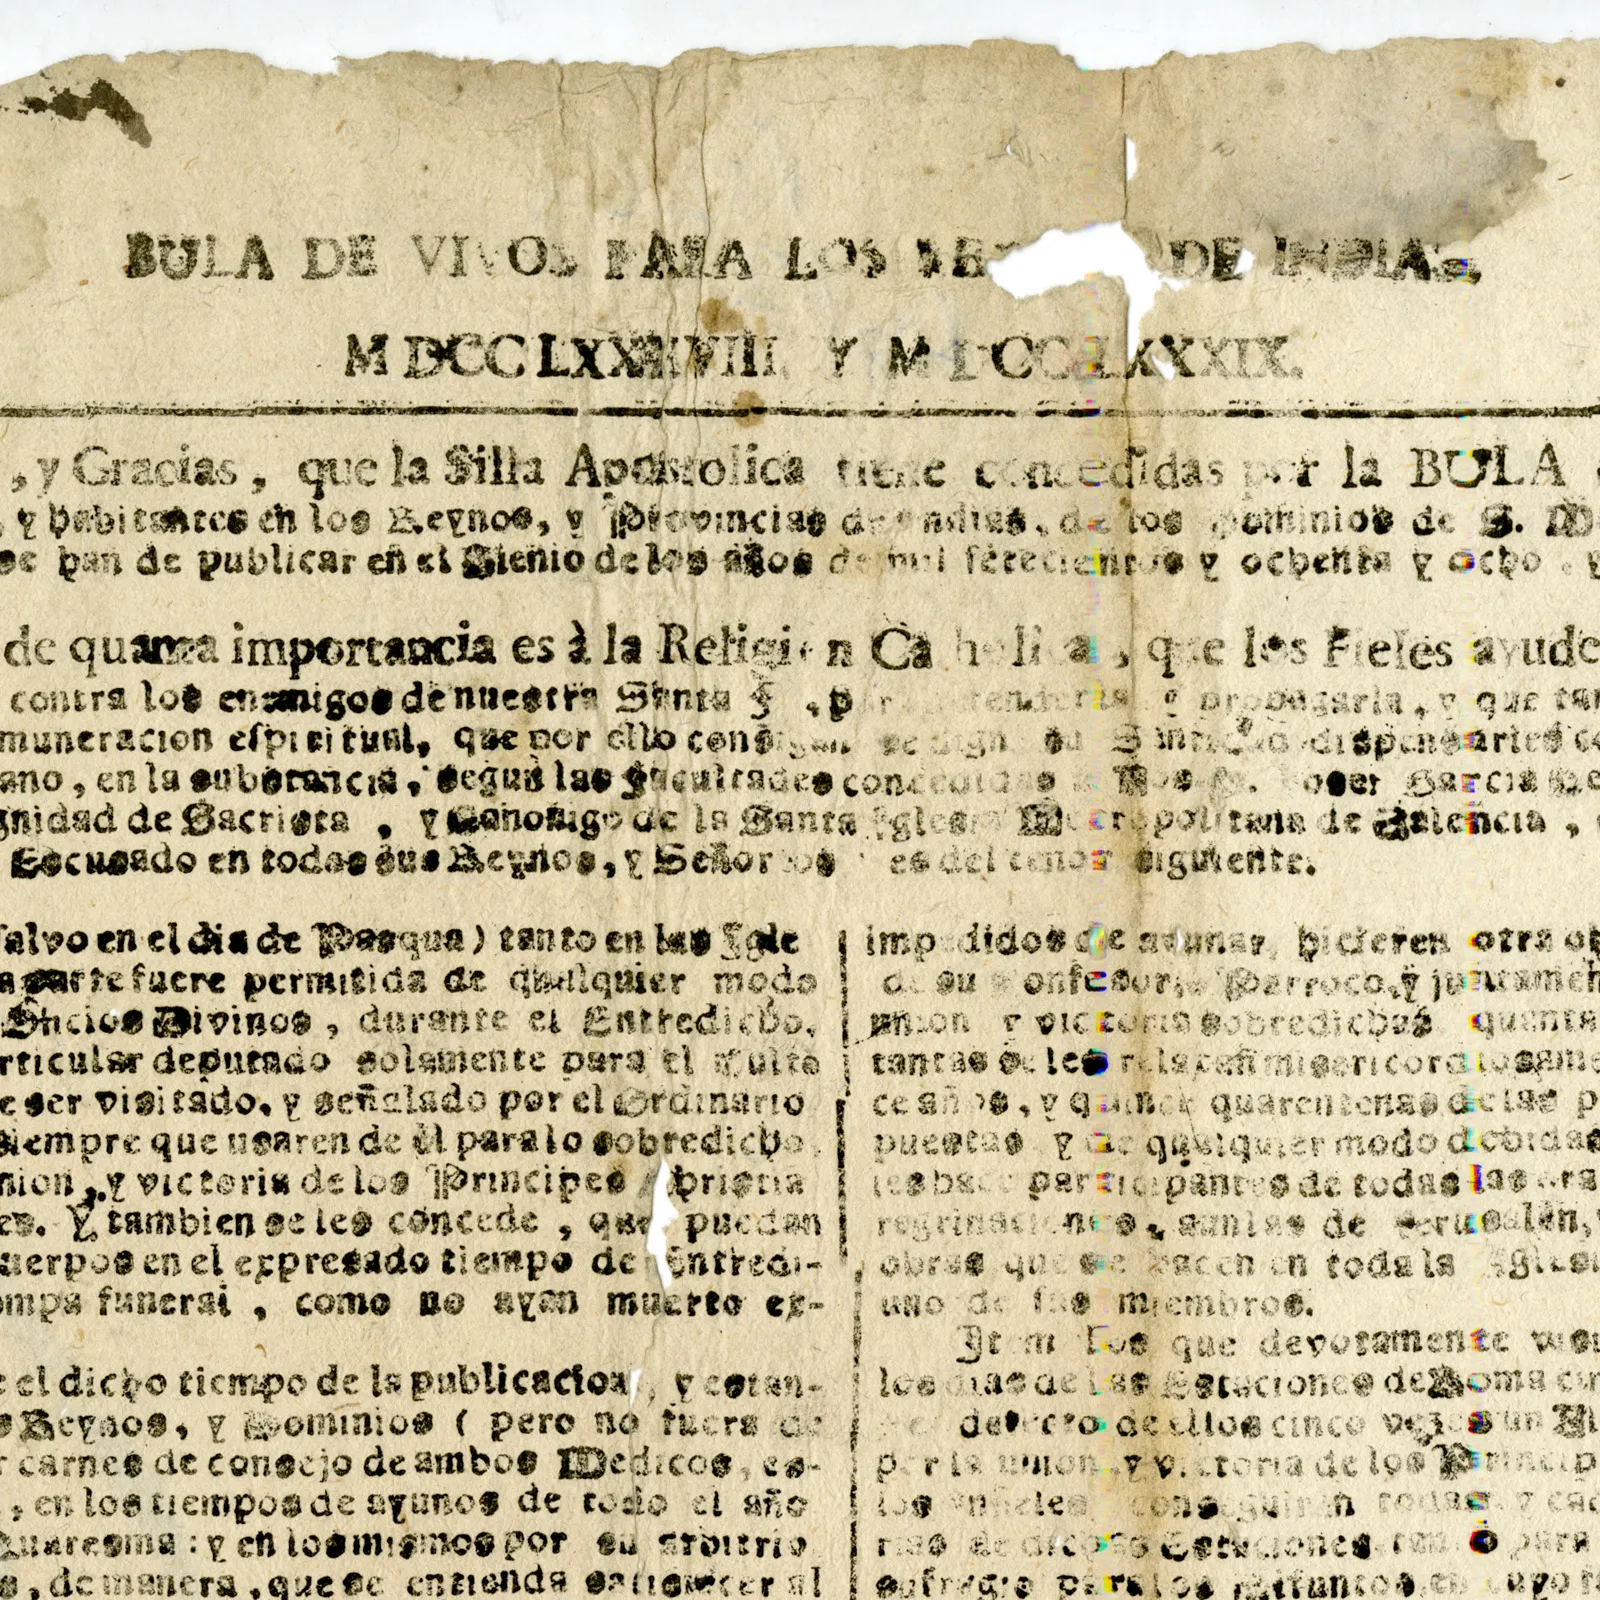 BULA DE VIVOS PARA LOS DE INDIAS,
MDCCLXXXVIII Y MDCCLXXXIX.
, y Gracias, que la Silla Apostolica tiene concedidas por la BULA
, y habitantes en los Reynos, y Provincias de Indias, de los Dominios de S. M
se han de publicar en el Bienio de los años de mil setecientos y ochenta y ocho, y
de quanta importancia es à la Religion Catholica, que los Fieles ayude
contra los enemigos de nuestra Santa Fe, para defenderla y propagarla, y que tam
muneracion espiritual, que por ello consigan se digne su Santidad dispensarles
ano, en la substancia, segun las Facultades concedidas Garcia
gnidad de Sacrista, y Canonigo de la Santa Iglesia Metropolitana de Valencia,
Escusado en todos sus Reynos, y Señorios es del tenor siguiente.
salvo en el dia de Pasqua) tanto en las Igle
parte fuere permitida de qualquier modo
Oficios Divinos, durante el Entredicho,
rticular deputado solamente para el Culto
e ser visitado, y señalado por el Ordinario
siempre que usaren de èl para lo sobredicho,
nion, y victoria de los Principes Christia
es. Y tambien se les concede, que puedan
uerpos en el expresado tiempo de Entredi-
ompa funeral, como no ayan muerto ex-
e el dicho tiempo de la publicacion, y estan-
s Reynos, y Dominios (pero no fuera de
r carnes de consejo de ambos Medicos, es-
, en los tiempos de ayunos de todo el año
Quaresma: y en los mismos por su arbitrio
s, de manera, que se entienda satisfacer al
impedidos de ayunar, hicieren otra ob
de su Confesor, Parroco, y juntamen
union y victoria sobredichas, quanta
tantas se les relaxan misericordiosame
ce años, y quince quarentenas de las p
puestas, y de qualquier modo debidas
les hace participantes de todas las ora
regrinaciones, aun las de Jerusalèn,
obras que se hacen en toda la Iglesi
uno de sus miembros.
Item los que devotamente visi
los dias de las Estaciones de Roma cin
defecto de ellos cinco veces un Al
por la union, y victoria de los Princip
los Infieles, conseguiràn todas, y cad
de dichas Estaciones, para
sufragio para los Difuntos, en cuyo